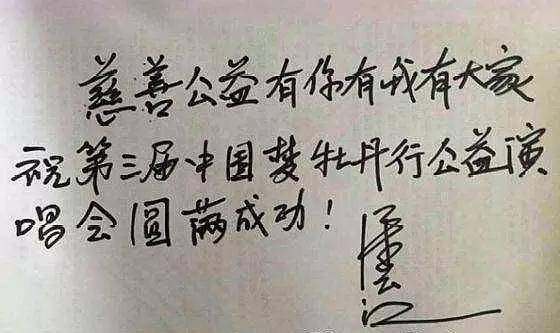 慈善公益有你有我有大家
祝第三届中国梦牡丹行公益演
唱会圆满成功!